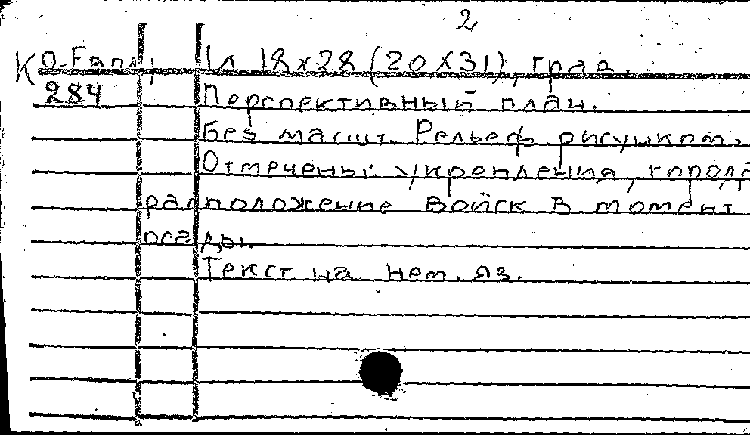 2
К О-Евр. 1л 18х28 (20х31), грав.
284 Перспективный план.
Без масшт. Рельеф рисунком.
Отмечены укрепления, города
расположение войск в момент
осады.
Текст на нем. яз.